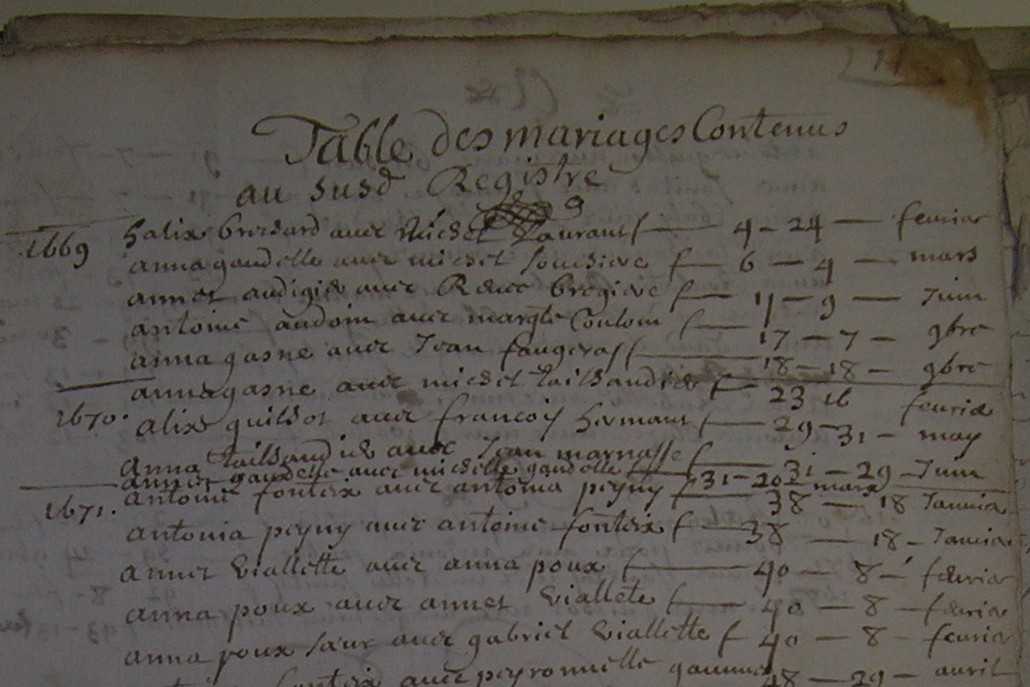 11
Table des mariages Contenus
au susd Registre
9
1669 halix brossard avec Michel Laurant f — 4 - 24 — feurier
anna gaudelle avec michel f — 6 — 4 — mars
annet audigier avec f — 11 - 9 — Juin
antoine audom avec margte Coulom f — 17 — 7 — 9bre
anna gasne avec Jean faugeras f — 18 - 18 — 9bre
anna gasne avec michel taillandier f — 23 16 feurier
1670. alix guillot avec francois hermant f — 29 - 31 - may
anna taillandier avec Jean marnasse f — 31 — 29 — Juin
annet gaudelle avec michelle gaudelle f 31 - 20 mars
1671. antoine fonteix avec antonia peyny f 38 — 18 Januier
antonia peyny avec antoine fonteix f — 38 — 18 - Januier
annet Viallette avec anna poux f — 40 — 8 - feurier
anna poux avec annet Viallete f — 40 — 8 — feurier
anna poux sœur avec gabriel Viallette f 40 — 8 — feurier
fonteix avec peyronnelle 48 — 29 — auril